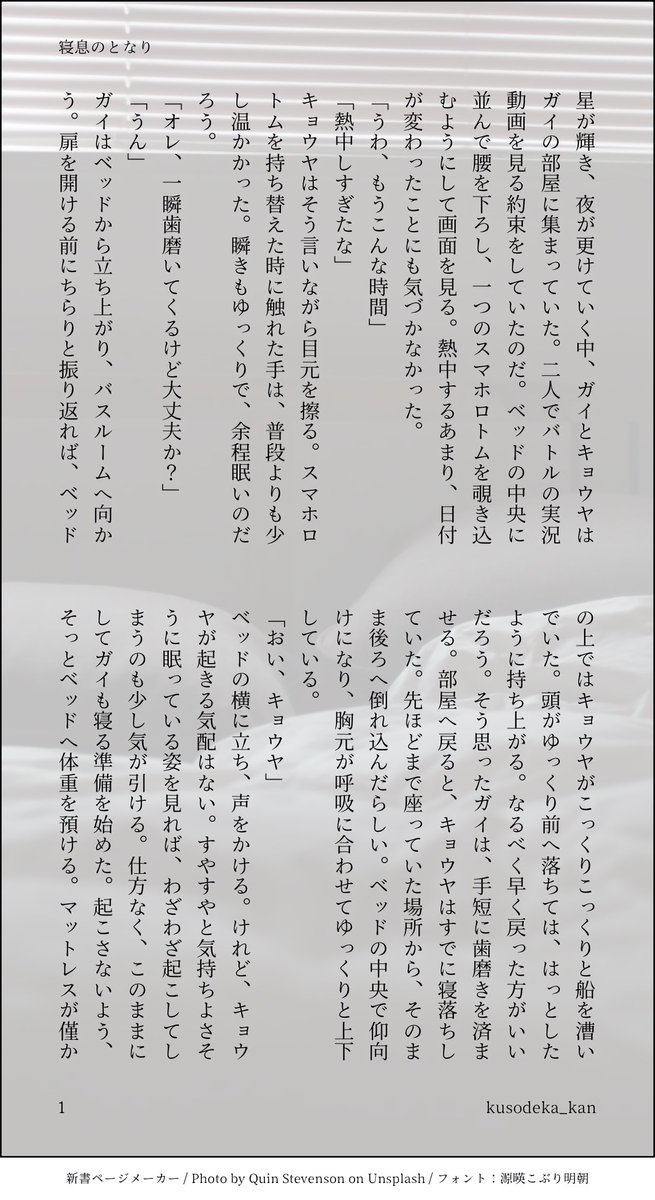 寝息のとなり
星が輝き、夜が更けていく中、ガイとキョウヤは
ガイの部屋に集まっていた。二人でバトルの実況
動画を見る約束をしていたのだ。ベッドの中央に
並んで腰を下ろし、一つのスマホロトムを覗き込
むようにして画面を見る。熱中するあまり、日付
が変わったことにも気づかなかった。
「うわ、もうこんな時間」
「熱中しすぎたな」
キョウヤはそう言いながら目元を擦る。スマホロ
トムを持ち替えた時に触れた手は、普段よりも少
し温かかった。瞬きもゆっくりで、余程眠いのだ
ろう。
「オレ、一瞬歯磨いてくるけど大丈夫か?」
「うん」
ガイはベッドから立ち上がり、バスルームへ向か
う。扉を開ける前にちらりと振り返れば、ベッド
の上ではキョウヤがこっくりこっくりと船を漕い
でいた。頭がゆっくり前へ落ちては、はっとした
ように持ち上がる。なるべく早く戻った方がいい
だろう。そう思ったガイは、手短に歯磨きを済ま
せる。部屋へ戻ると、キョウヤはすでに寝落ちし
ていた。先ほどまで座っていた場所から、そのま
ま後ろへ倒れ込んだらしい。ベッドの中央で仰向
けになり、胸元が呼吸に合わせてゆっくりと上下
している。
「おい、キョウヤ」
ベッドの横に立ち、声をかける。けれど、キョウ
ヤが起きる気配はない。すやすやと気持ちよさそ
うに眠っている姿を見れば、わざわざ起こしてし
まうのも少し気が引ける。仕方なく、このままに
してガイも寝る準備を始めた。起こさないよう、
そっとベッドへ体重を預ける。マットレスが僅か
1
kusodeka_kan
新書ページメーカー / Photo by Quin Stevenson on Unsplash / フォント：源暎こぶり明朝